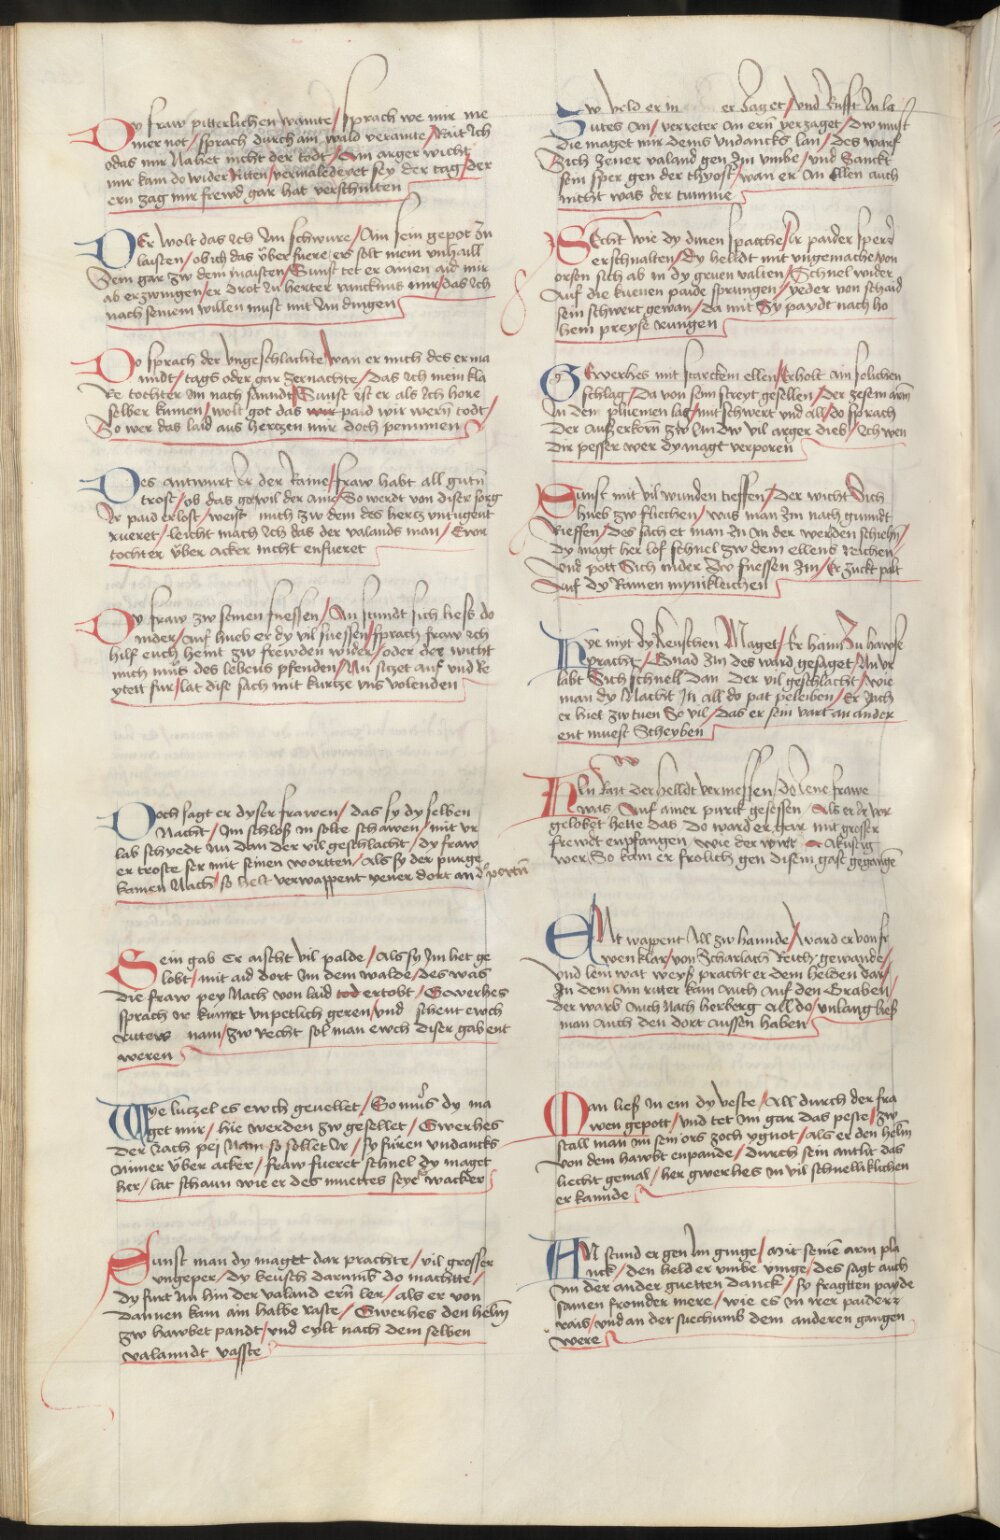 Dy fraw pitterlichen wainte / sprach we mir me
mer not / sprach durch ain wald verainte / Rait Ich
odas mir Nahet nicht der todt / Ain arger wicht
mir kam do wider Ritten / vermaledeyet sey der tag / der
ern zag mir frewd gar hat verschnitten
DEr wolt das Ich Im schwure / Am sein gepot zu
laisten / ob ich das vber fuere / er solt mein vnhaill
Dem gar zw dem maisten / Sunst tet er ainen aid mir
ab erzwingen / er drot In herter vancknus mir / das Ich
nach seinem willen must mit Im dingen
Do sprach der vngeschlachte / wan er mich des erma
nndt / tags oder gar zernachte / das Ich mein kla
Re tochter Im nach sanndt / Sunst ist er als Ich hore
selber kumen / wolt got das paid wir wern todt /
So wer das laid aus hertzen mir doch penumen
Des antwurt Er der Raine / fraw habt all gutn
trost / ob das gotwil der ain / So werdt von diser sorg
Ir paid erlost / weist mich zw dem des hertz vntugent
rueret / leicht mach Ich das der valands man / Ewr
tochter vber acker nicht enfueret
Dy fraw zw seinen fuessen / An stundt sich liess do
nider / Auf hueb er dy vil suessen / sprach fraw Ich
hilf euch heint zw frewden wider / oder der wicht
mich muos des lebens pfenden / Nu sitzet auf vnd Re
ytett fur / lat dise sach mit kurtze vns volenden
Doch sagt er dyser frawen / das sy dy selben
Nacht / Im schlos in solte schawen / mit vr
lab schyedt Im dan der vil geschlacht / dy fraw
er troste ser mit seinen wortten / Als sy der purge
kamen Nach / so helt verwappent yener dort an der porten
Sein gab Er aischt vil palde / Als sy Im het ge
lobt / mit aid dort Im dem walde / des was
die fraw pey Nach von laid tod ertobt / Gewerhes
sprach Ir kumet vnpetlich geren / vnd scheut ewch
Ritters nam / zw Recht sol man ewch diser gab ent
weren
Wye lutzel es ewch geuellet / So muos dy ma
get mir / hie werden zw gesellet / Gwerhes
der Iach pej Nam so sollet Ir / sy furen vndancks
nimer vber acker / fraw fueret schnel dy maget
her / lat schaun wie er des muettes seye wacker
Sunst man dy magett dar prachte / vil grosser
vngeper / dy keusch darumb do machtte /
dy furt Im hin der valand ern ler / als er von
dannen kam ain halbe raste / Gwerhes den helm
zw hawbet pandt / vnd eylt nach dem selben
valanndt vasste
Zw veld er in er Iaget / vnd Rufft In la
Sutes an / verreter an ern verzaget / Dw must
die maget mir deins vndancks lan / des warf
Sich zener valand gen Im vmbe / vnd Sanckt
sein sper gen der thyost / wan er an ellen auch
nicht was der tumme
SEcht wie dy dinen spacche / Ir paider sperr
erschnalten / Dy helldt mit vngemache / von
orsen sich ab in dy gruen valten / Schnel wider
Auf die kuenen paide sprungen / yeder von schaid
sein schwert gewan / da mit Sy paydt nach ho
hem preyse rungen
GEwerhes mit starckem ellen / Erholt ain solichen
schlag / Da von sein streyt gesellen / Der zesem arm
In den pluemen lag / mit schwert vnd all / do sprach
Der Ausserkorn zw Im dw vil arger dieb / Ich wen
Dir pesser wer dy magt verporen
Sunst mit vil wunden tieffen / Der wicht Sich
hueb zw fliechen / was man Im nach gunndt
Rieffen / Des sach et man In an der werden schiehn /
Dy magt her lof schnel zw dem ellens Reichen
vnd pott Sich nider Zw fuessen Im / Er zuckt palt
Auf dy Rainen mynikleichen
Hye myt dy keuschen Maget / Er haim Zu hawse
pracht / Gnad Im des ward gesaget / An vr
labt Sich schnell dan der vil geschlacht / wie
man dy Nacht In all do pat peleiben / Er Iach
er hiet zw tuen So vil / Das er sein vart an ander
ent muest Scheyben
HIn Rait der helldt vermessen / do Iene frawe
was Auf ainer purck gesessen Als er Ir vor
gelobet hette das Do ward er gar mit grosser
frewdt enpfangen wie der wirt akustig
wer So kam er frolich gen disem gast gegangen
ENt wapent All zw hannde / ward er von fr
wen klar / von Scharlach Reich gewande /
vnd lein wat weys pracht er dem helden dar /
In dem ain ritter kam Auch Auf den Graben /
der warb Auch Nach herberg all do / vnlang lies
man Auch den dort aussen haben
Man lies In ein dy veste / All durch der fra
wen gepott / vnd tet Im gar das peste / zw
stall man Im sein ors zoch ygnot / als er den helm
von dem hawbt enpande / durch sein antlit das
liecht gemal / her gwerhes In vil schnelliklichen
er kannde
AN stund er gen Im ginge / Mit seinen arm pla
nck / den held er vmbe vinge / des sagt auch
Im der ander guetten danck / sy fragtten payde
samen fromder mere / wie es In irer paider
rais / vnd an der suechumb dem anderen gangen
were